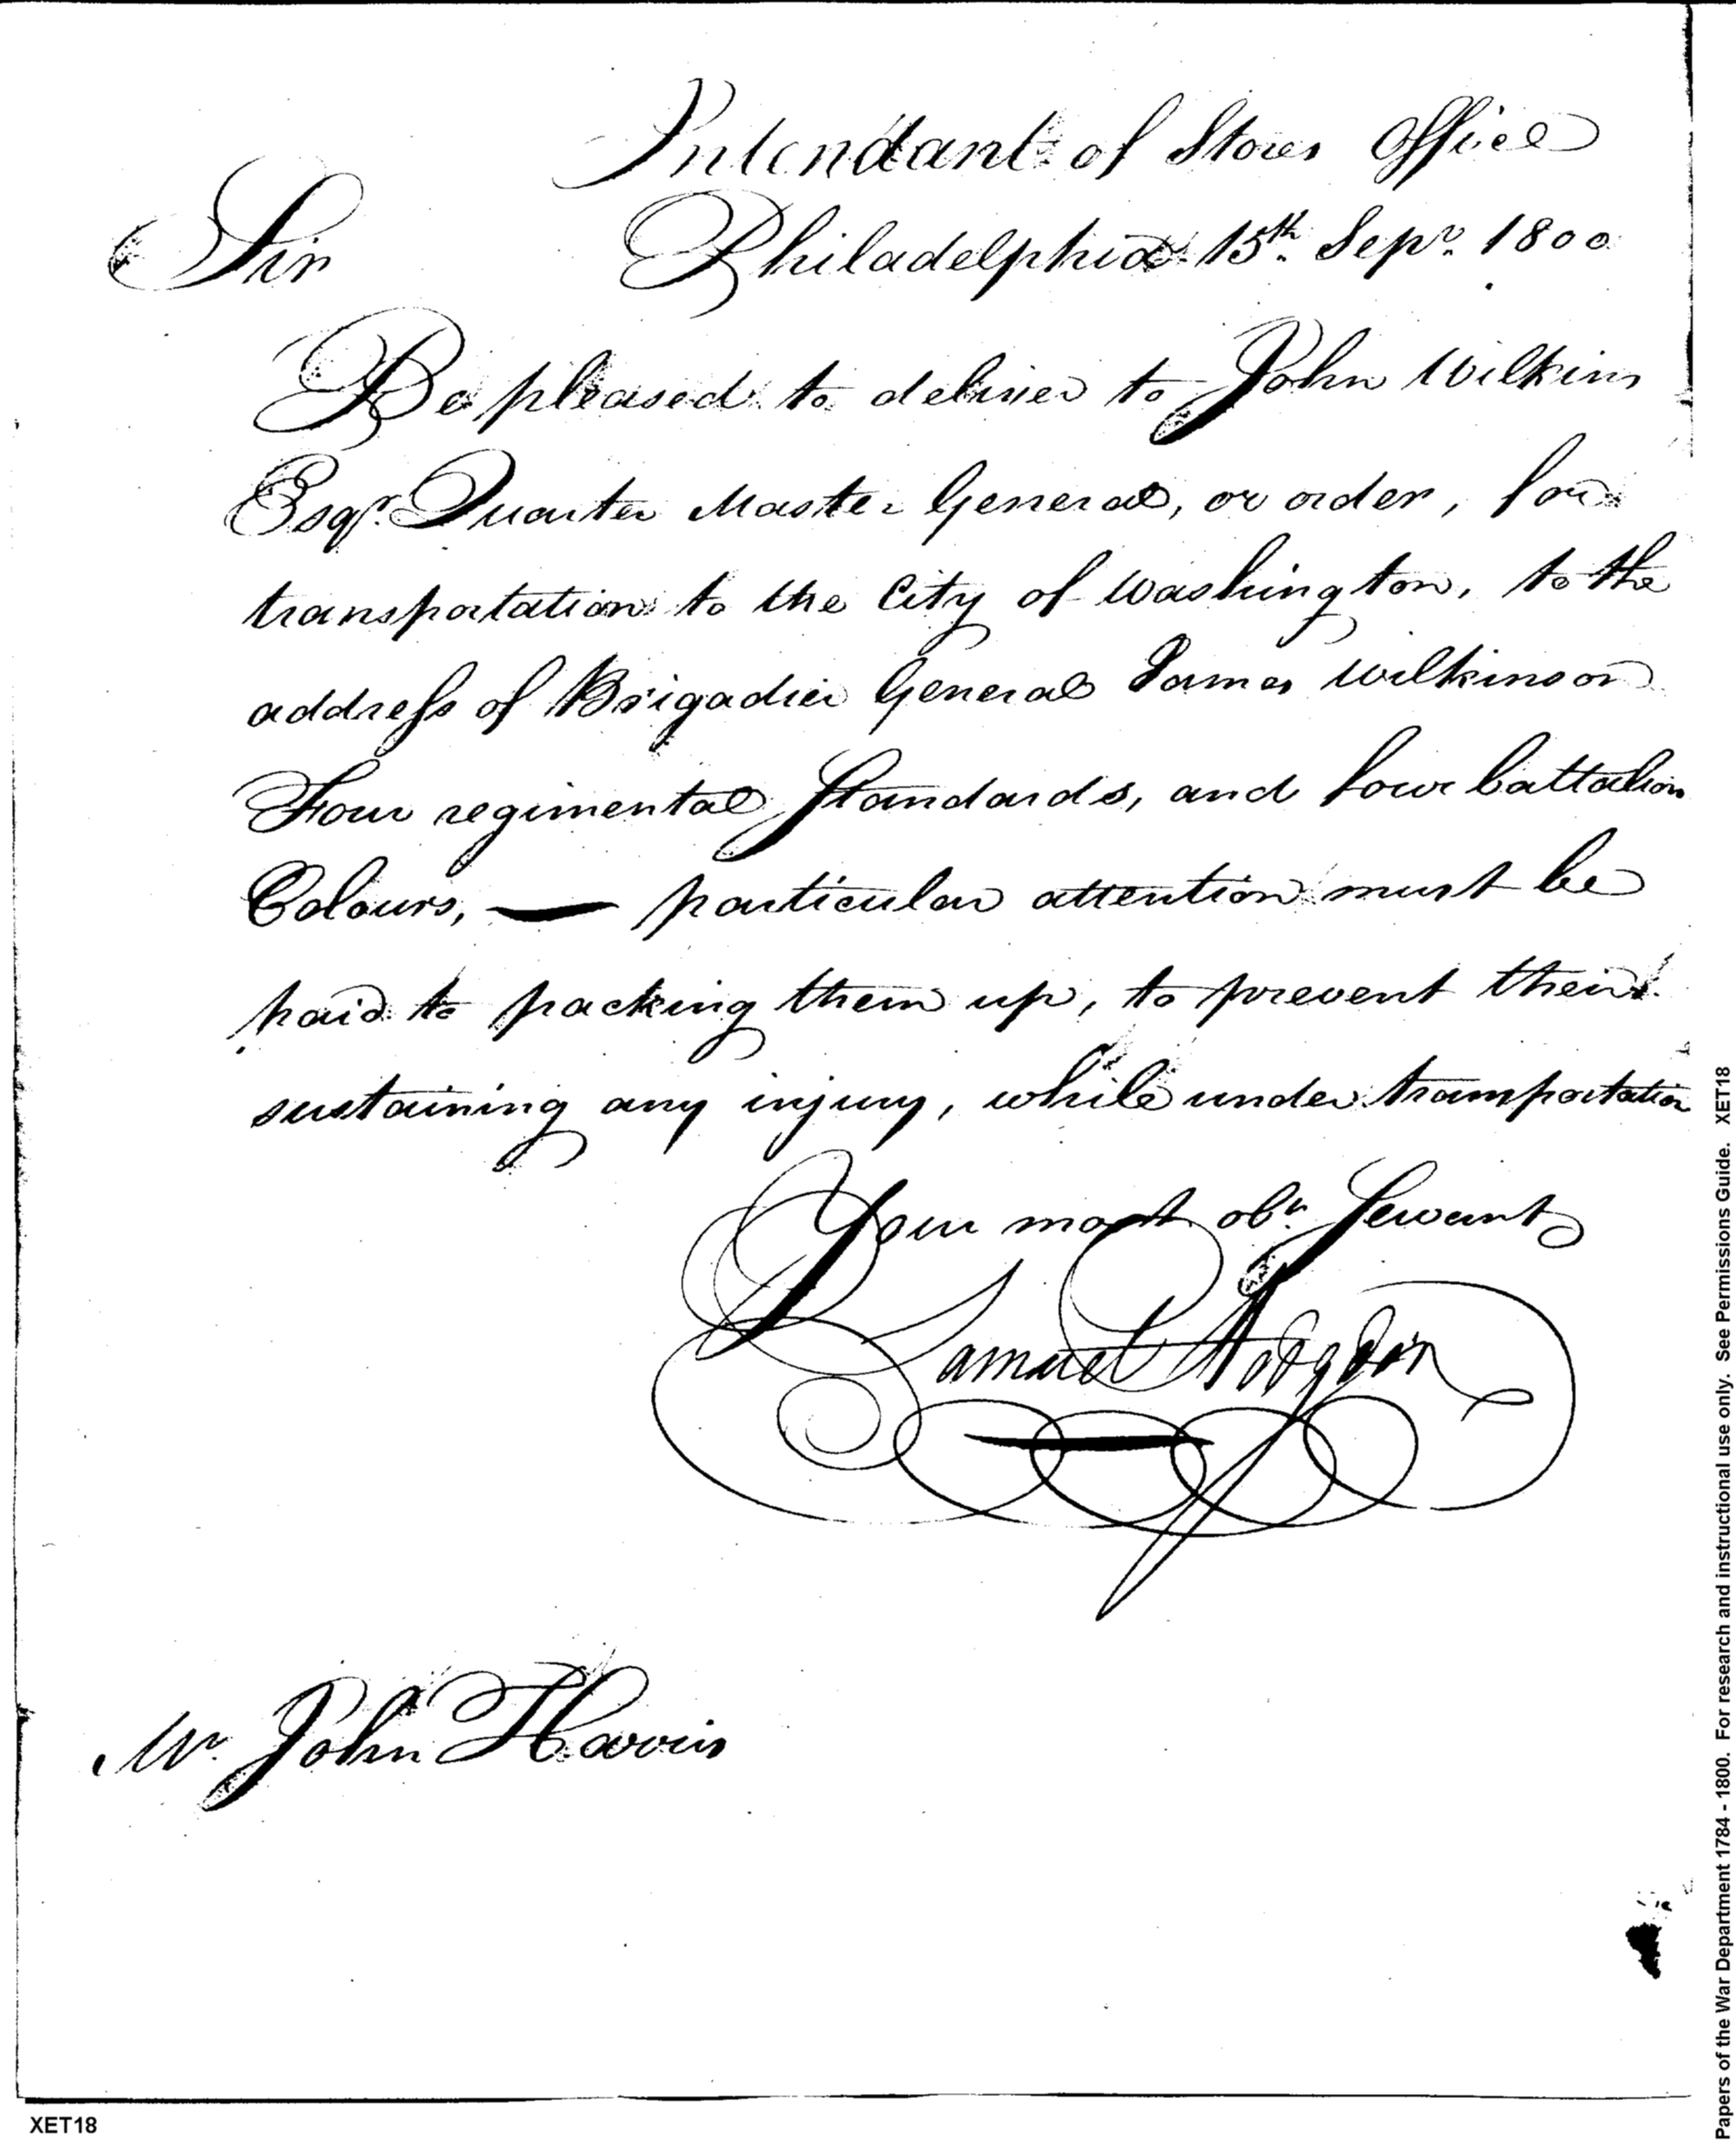 Intendant of Stores Office
Sir Philadelphia 15th. Sepr. 1800
Be pleased to deliver to John Wilkins
Esqr. Quarter Master General, or order, for
transportation to the City of Washington, to the
address of Brigadier General James Wilkinson
Four regimental Standards, and four battalion
Colours, — particular attention must be
paid to packing them up, to prevent their
sustaining any injury, while under transportation
Your most obt. Servant
Samuel Hodgdon
Mr. John Harris
XET18
Papers of the War Department 1784 - 1800. For research and instructional use only. See Permissions Guide. XET18